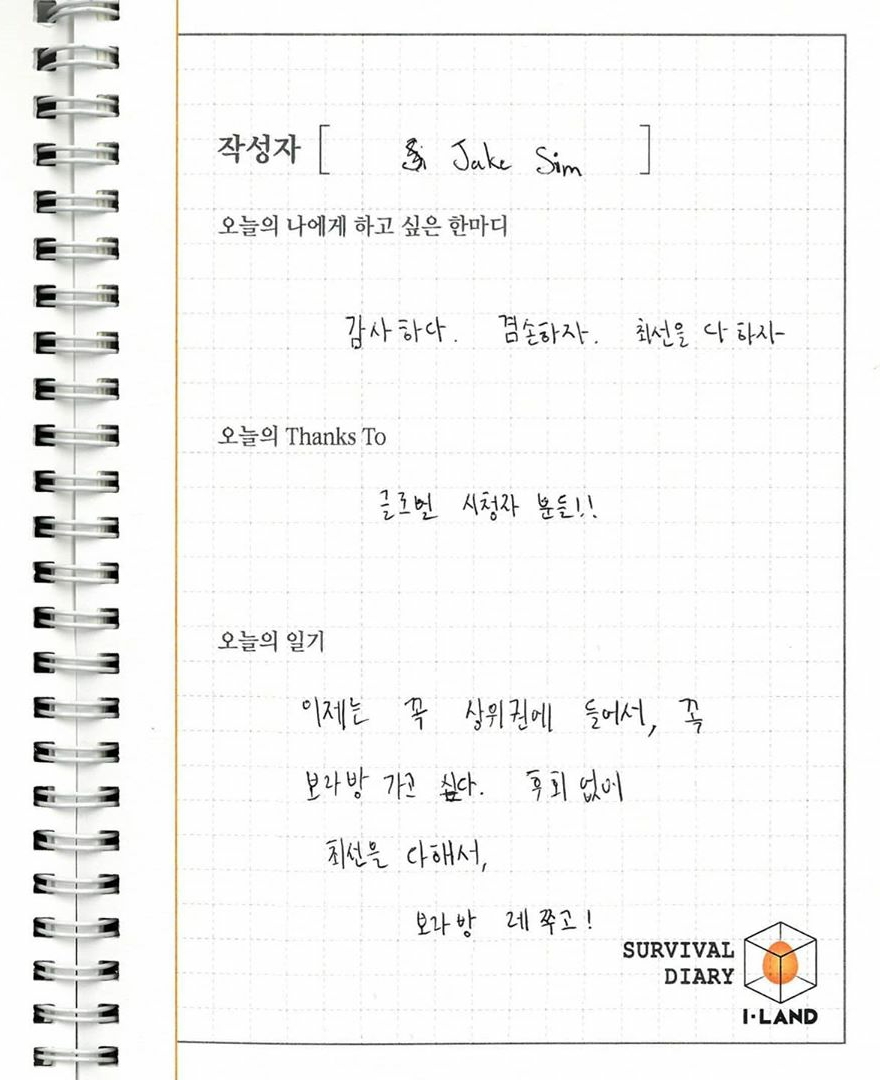 작성자 [ Jake Sim ]
오늘의 나에게 하고 싶은 한마디
감사하다. 겸손하자. 최선을 다하자
오늘의 Thanks To
글로벌 시청자 분들!!
오늘의 일기
이제는 꼭 상위권에 들어서, 꼭
보라방 가고 싶다. 후회 없이
최선을 다해서,
보라방 레쭈고!
SURVIVAL
DIARY
I·LAND